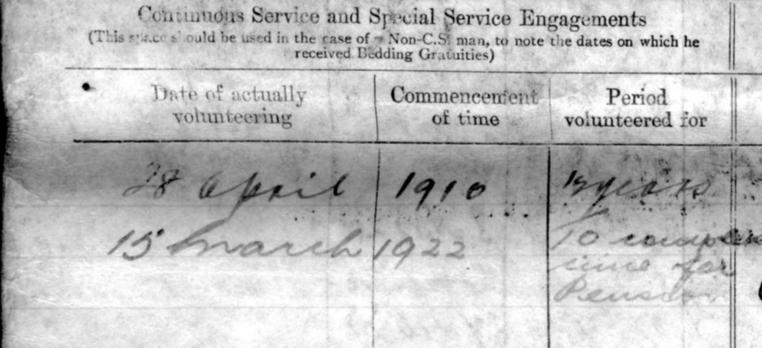 Continuous Service and Special Service Engagements
(This space should be used in the case of a Non-C.S. man, to note the dates on which he
received Bedding Gratuities)
Date of actually volunteering
Commencement of time
Period volunteered for
28 April 1910 12 years
15 March 1922 To complete
time for
Pension